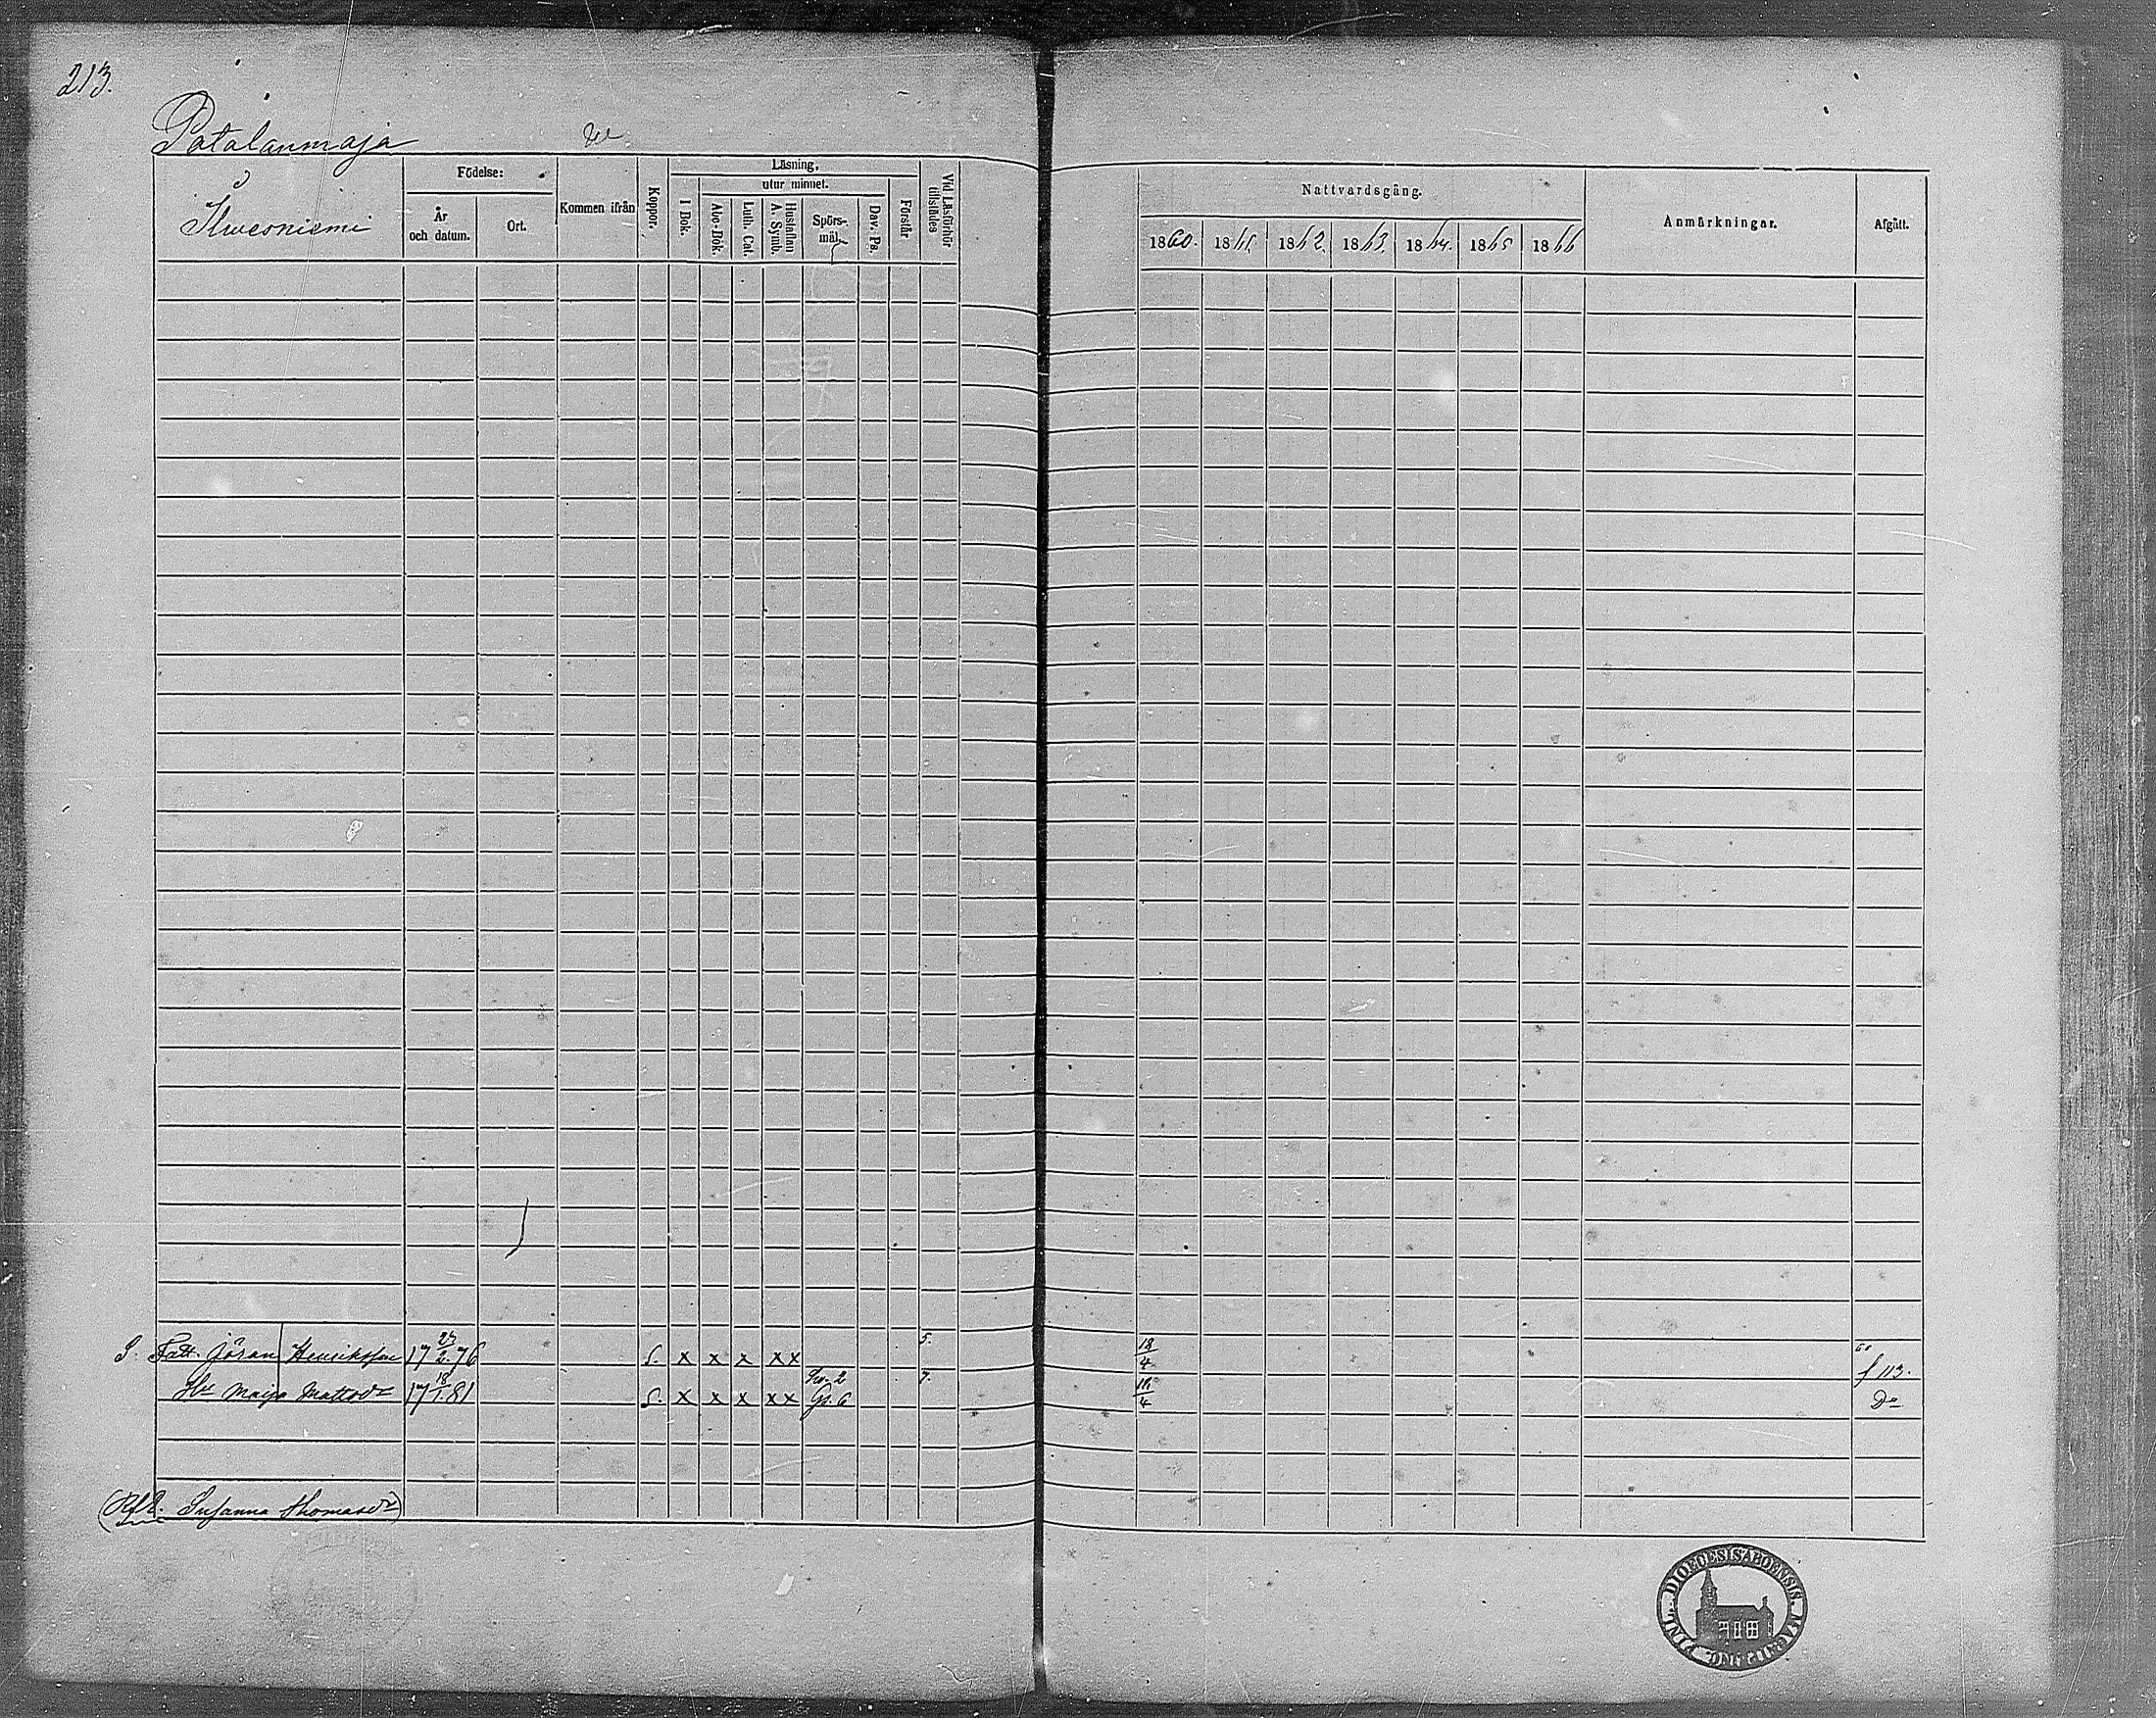 213.
Patalanmaja
Ilwesniemi
Födelse:
År och datum.
Ort.
Kommen ifrån
Koppor.
Läsning.
utur minnet.
I Bok.
Abc-Bok.
Luth. Cat.
Hustaflan A. Symb.
Spörsmål.
Dav. Ps.
Förstår
Vid Läsförhör tillstädes
Nattvardsgång.
1860. 1861. 1862. 1863. 1864. 1865 1866
Anmärkningar.
Afgått.
Fatt. Jöran Henriksson 17 23/2. 76 S. x x x x x 5. 18/4 60 f 113.
Hu Maija Mattsdr 17 18/1. 81 S. x x x x x Sv. 2 Gr. 6 7. 18/4 Do
Susanna Thomasdr)
FINL. DIOECESIS ABOENSIS.